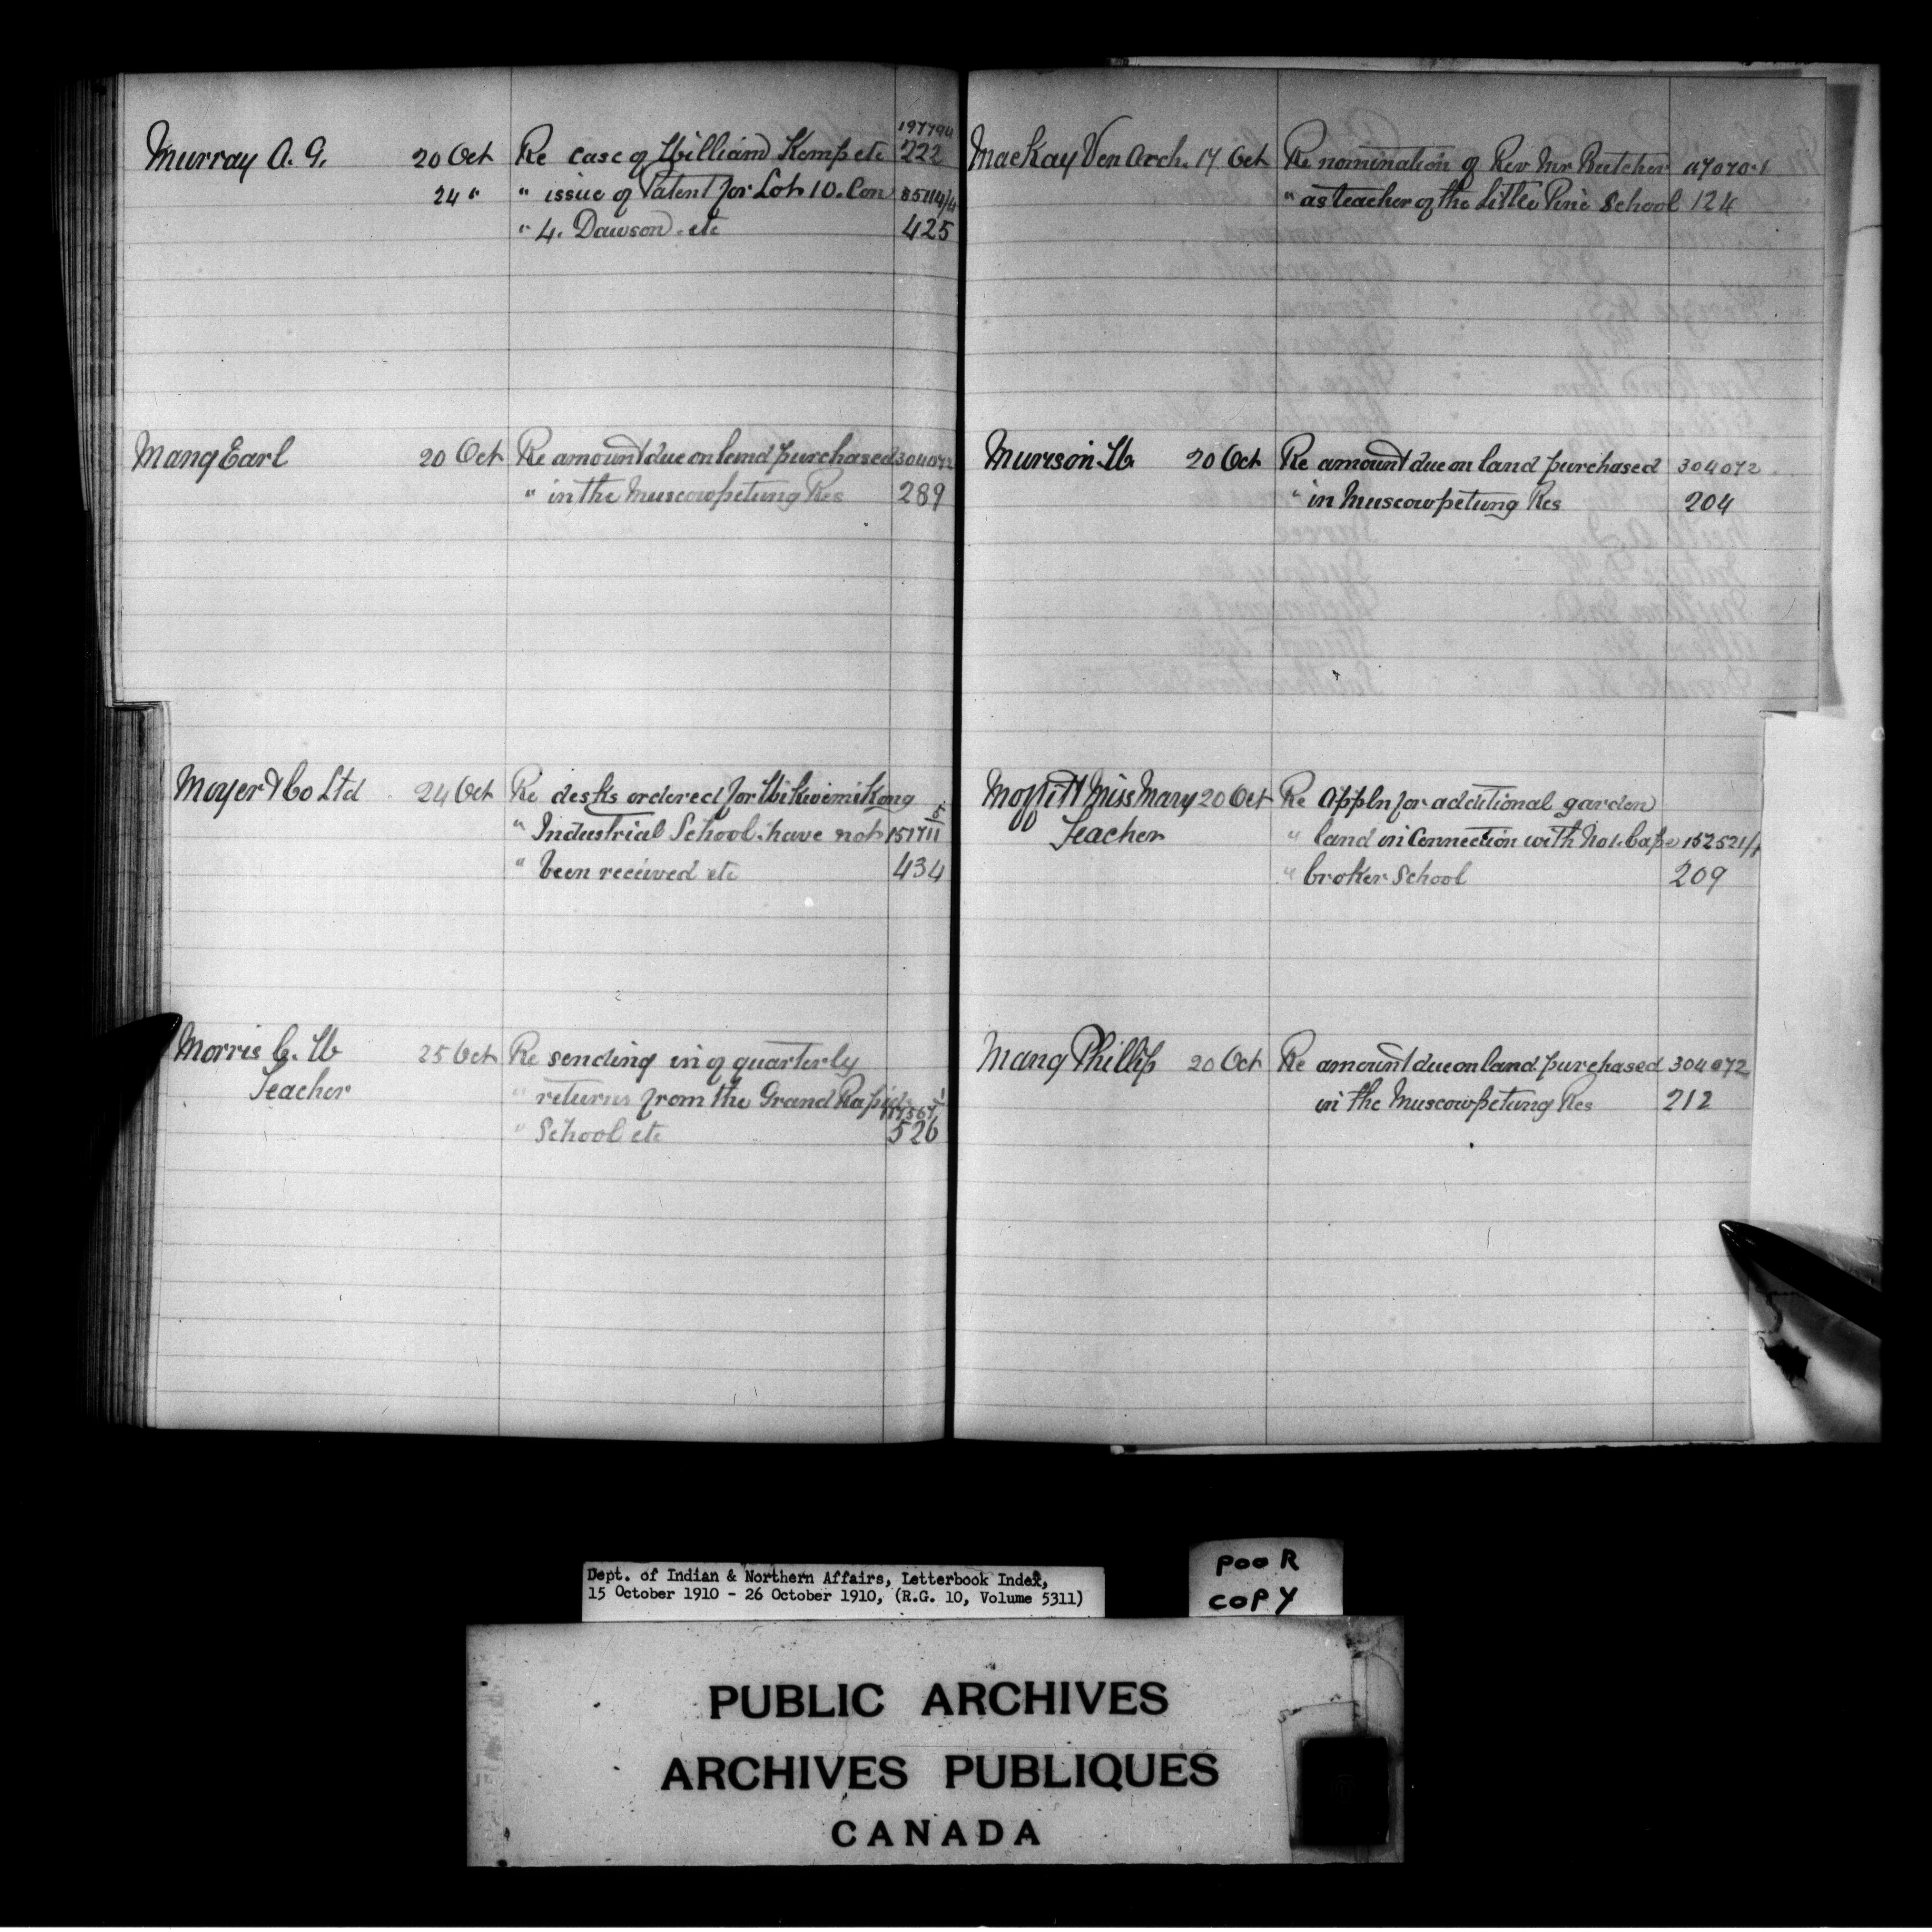 197794
Murray A. G. 20 Oct Re case of William Kemp etc 222
24 " " issue of Patent for Lot 10. Con 85114/4
" 4. Dawson etc 425
Mang Earl 20 Oct Re amount due on land purchased 304072
" in the Muscowpetung Res 289
Moyer & Co Ltd 24 Oct Re desks ordered for Wikwemikong
" Industrial School have not 151711
" been received etc 434
Morris C. W 25 Oct Re sending in of quarterly
Teacher " returns from the Grand Rapids
" School etc 526
MacKay Ven Arch. 17 Oct Re nomination of Rev Mr Butcher
" as teacher of the Little Pine School 124
Murison W. 20 Oct Re amount due on land purchased 304072
" in Muscowpetung Res 204
Moffitt Miss Mary 20 Oct Re Appln for additional garden
Teacher " land in connection with No 1. Cape 152521/1
" broker School 209
Mang Phillip 20 Oct Re amount due on land purchased 304072
in the Muscowpetung Res 212
Dept. of Indian & Northern Affairs, Letterbook Index,
15 October 1910 - 26 October 1910, (R.G. 10, Volume 5311)
POOR
COPY
PUBLIC ARCHIVES
ARCHIVES PUBLIQUES
CANADA